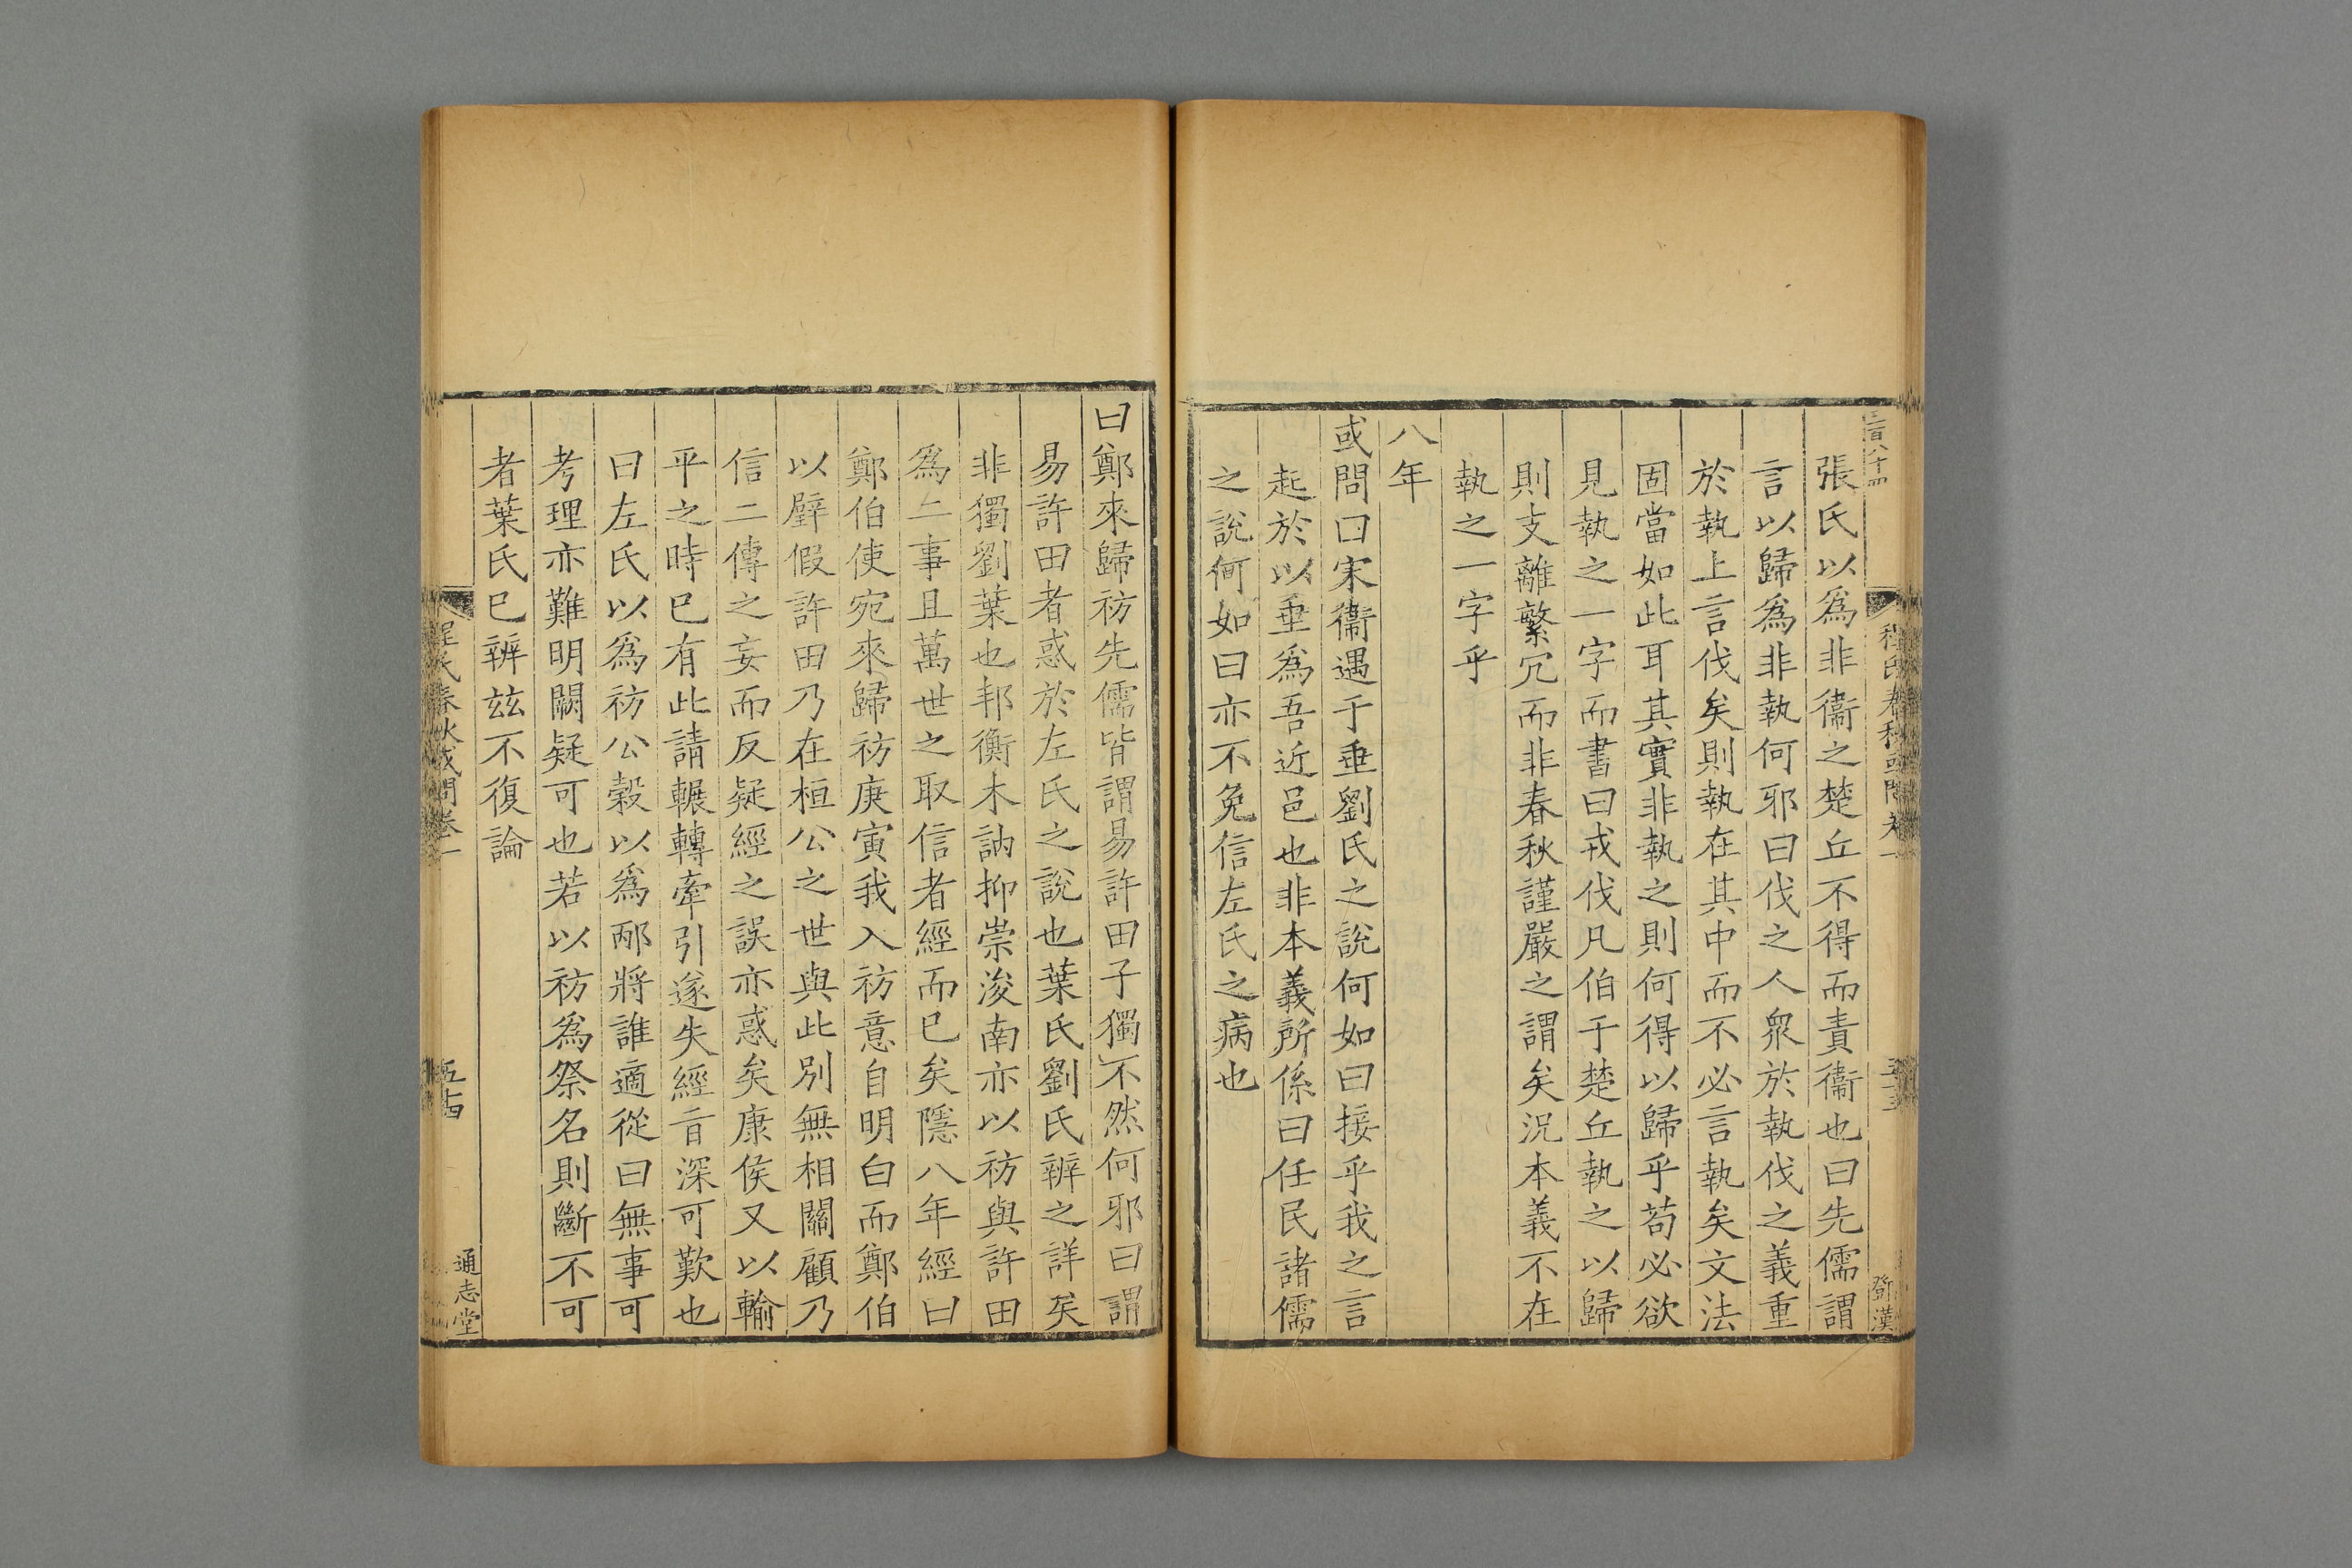 三百八十四
程氏春秋或問卷一
五十三
鄧漢
張氏以爲非衞之楚丘不得而責衞也曰先儒謂
言以歸爲非執何邪曰伐之人衆於執伐之義重
於執上言伐矣則執在其中而不必言執矣文法
固當如此耳其實非執之則何得以歸乎苟必欲
見執之一字而書曰戎伐凡伯于楚丘執之以歸
則支離繁冗而非春秋謹嚴之謂矣況本義不在
執之一字乎
八年
或問曰宋衞遇于垂劉氏之說何如曰接乎我之言
起於以垂爲吾近邑也非本義所係曰任民諸儒
之說何如曰亦不免信左氏之病也
曰鄭來歸祊先儒皆謂易許田子獨不然何邪曰謂
易許田者惑於左氏之說也葉氏劉氏辨之詳矣
非獨劉葉也邦衡木訥抑崇浚南亦以祊與許田
爲二事且萬世之取信者經而已矣隱八年經曰
鄭伯使宛來歸祊庚寅我入祊意自明白而鄭伯
以璧假許田乃在桓公之世與此別無相關顧乃
信二傳之妄而反疑經之誤亦惑矣康侯又以輸
平之時已有此請輾轉牽引遂失經旨深可歎也
曰左氏以爲祊公穀以爲邴將誰適從曰無事可
考理亦難明闕疑可也若以祊爲祭名則斷不可
者葉氏已辨玆不復論
程氏春秋或問卷一
五十四
通志堂